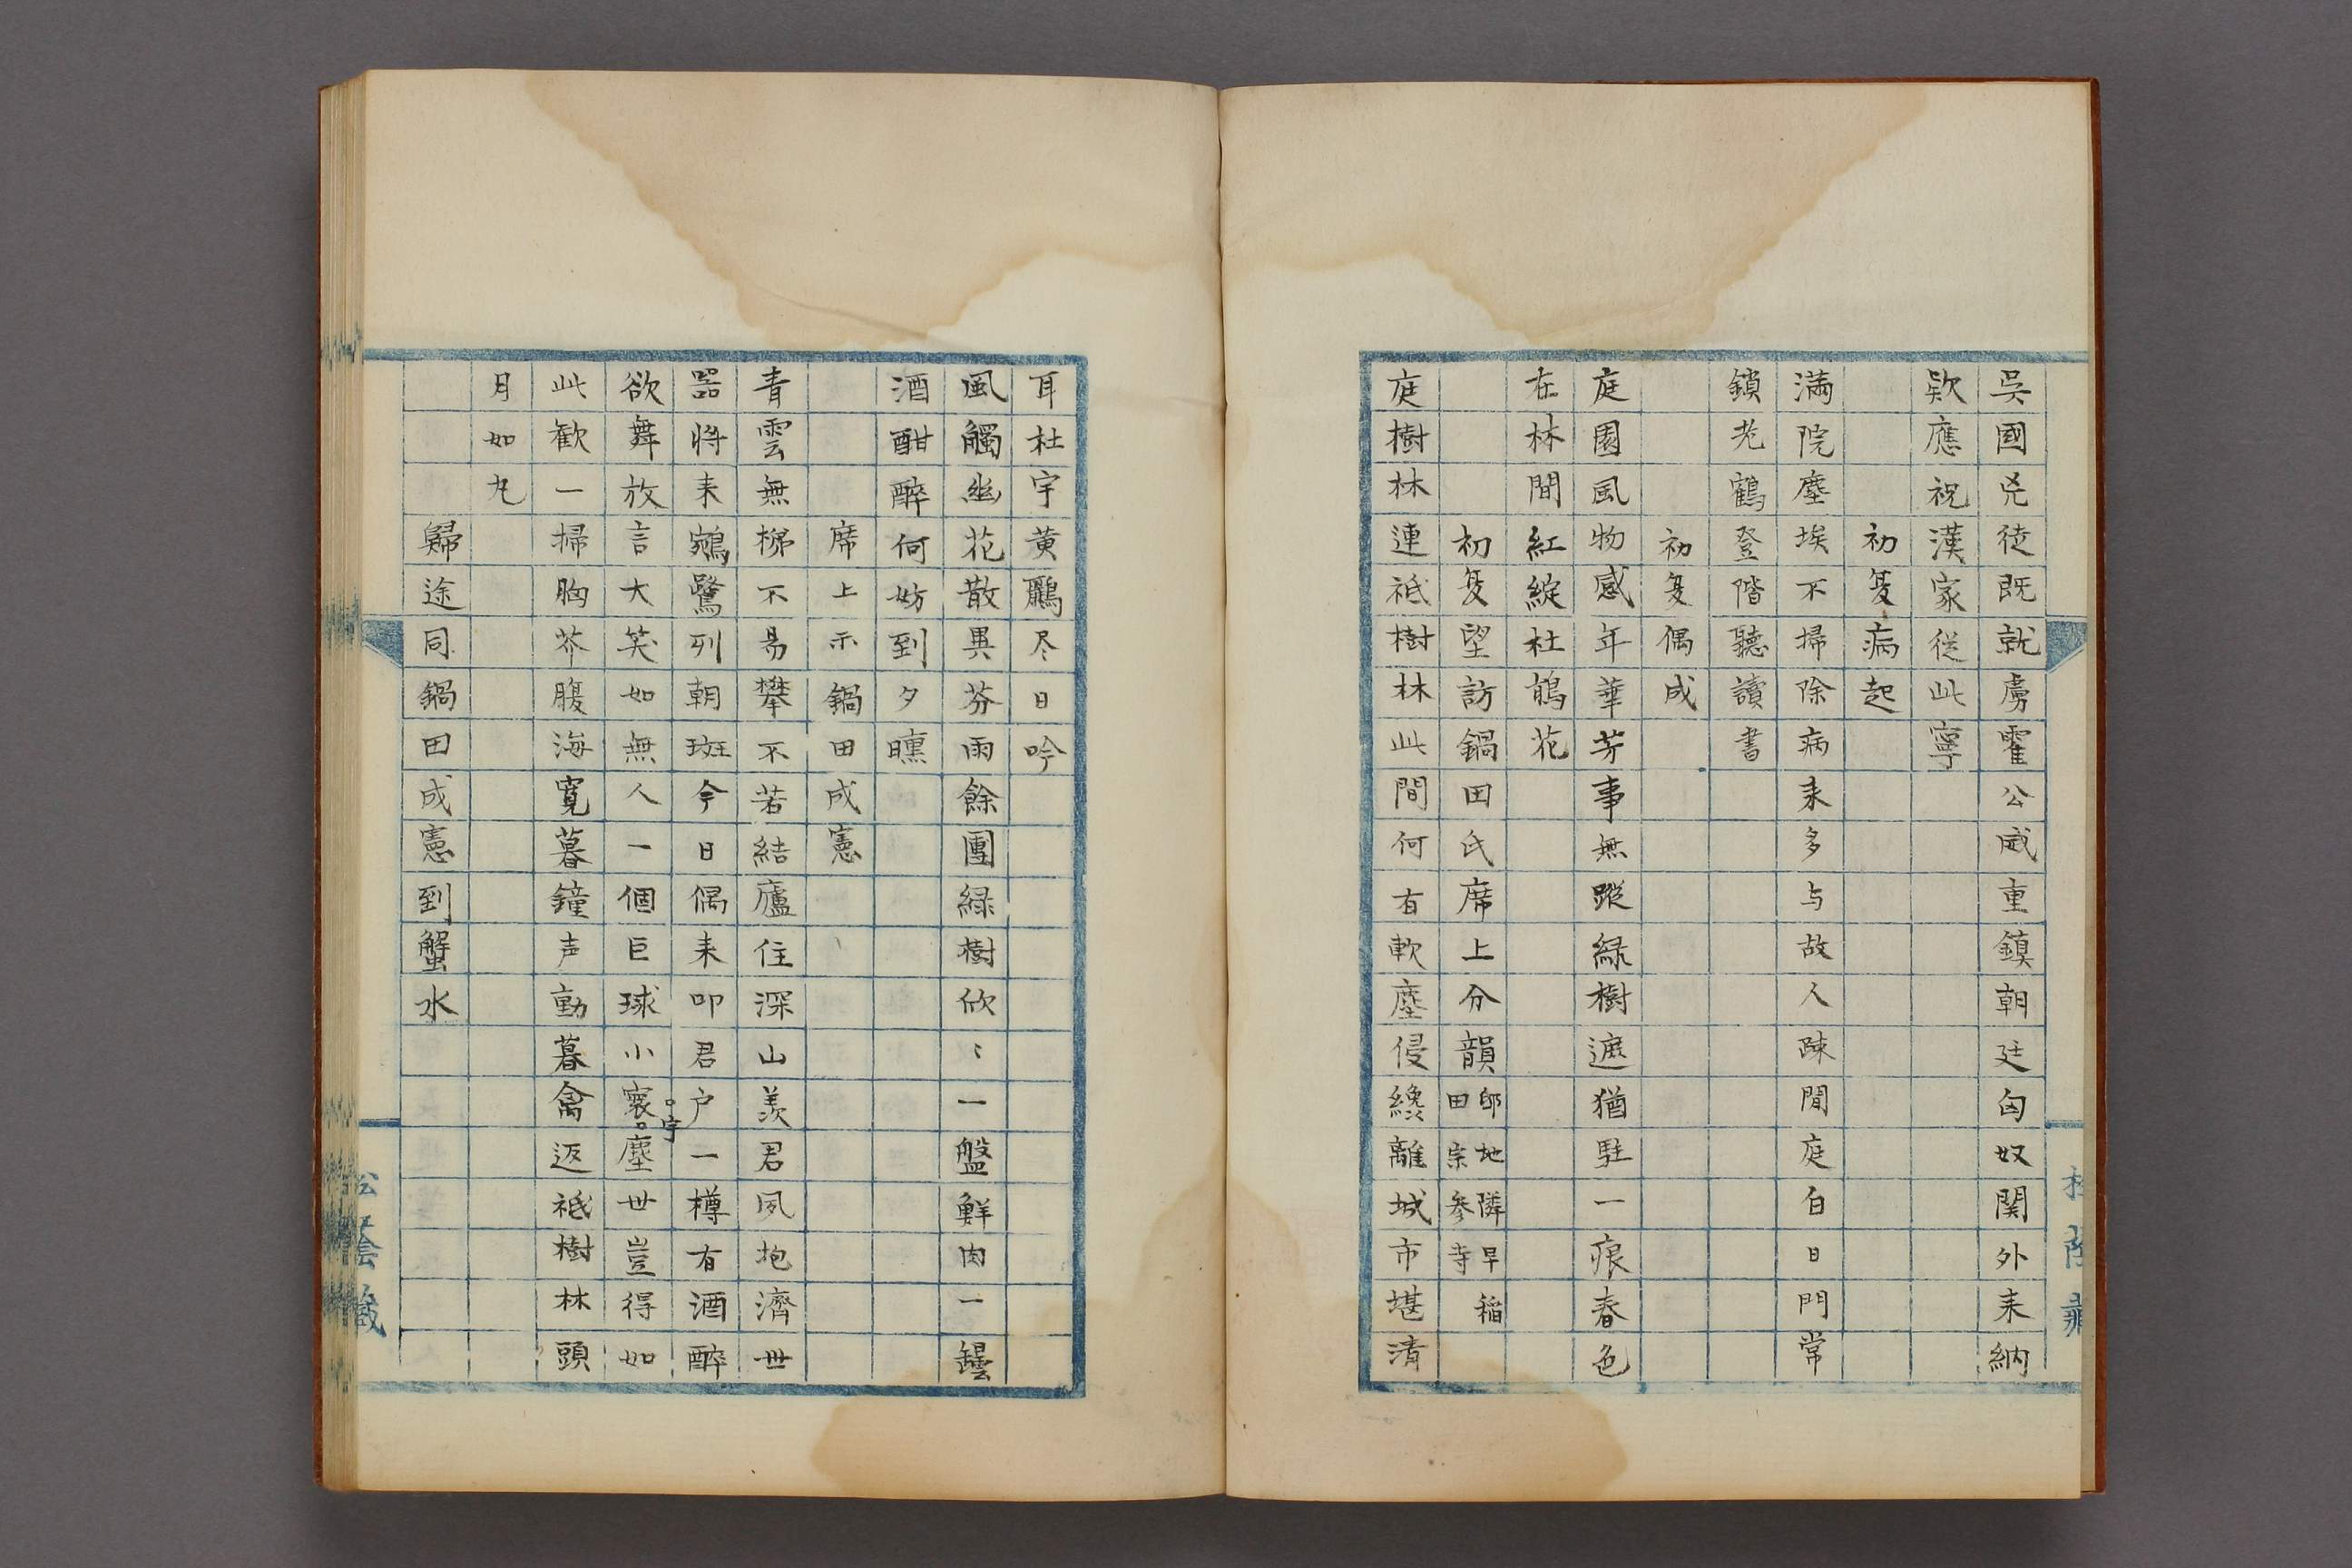 呉國兇徒既就虜霍公威重鎮朝廷匈奴関外来納
欵應祝漢家從此寧
初夏病起
満院塵埃不掃除病来多与故人踈閒庭白日門常
鎖老鶴登階聽讀書
初夏偶成
庭園風物感年華芳事無蹤緑樹遮猶駐一痕春色
在林間紅綻杜鵑花
初夏望訪鍋田氏席上分韻邸地隣早稲田宗参寺
庭樹林連祇樹林此間何有軟塵侵纔離城市堪清
耳杜宇黄鸝尽日吟
風觸幽花散異芬雨餘團緑樹欣〻一盤鮮肉一罎
酒酣醉何妨到夕曛
席上示鍋田成憲
青雲無梯不易攀不若結廬住深山羨君夙抱濟世
器将来鵷鷺列朝班今日偶来叩君户一樽有酒醉
欲舞放言大笑如無人一個巨球小寰宇塵世豈得如
此歓一掃胸芥腹海寛暮鐘声動暮禽返祇樹林頭
月如丸
歸途同鍋田成憲到蟹水
松陰蔵